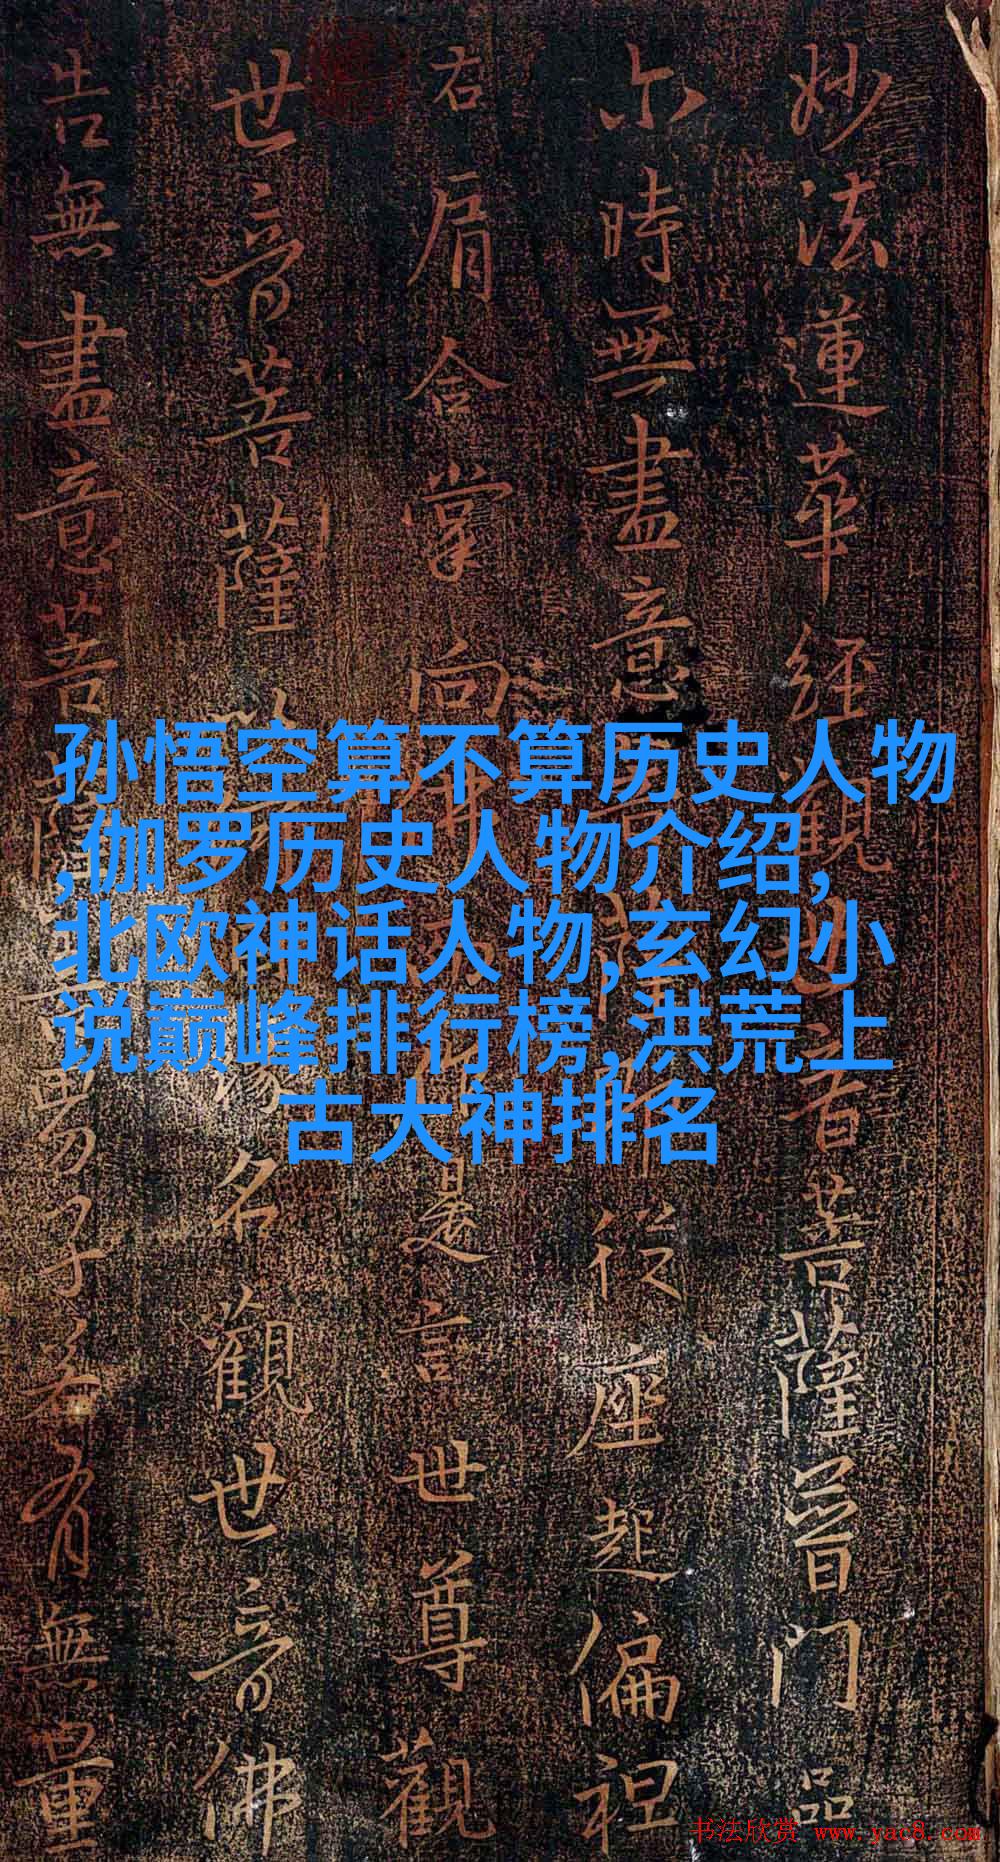 妙法蓮華經觀世音菩薩普門品
尒時無盡意菩薩即從座起偏袒
右肩合掌向佛而作是言世尊觀
世音菩薩以何因緣名觀世音佛
告無盡意菩薩善男子若有無量
孙悟空算不算历史人物
,伽罗历史人物介绍,
北欧神话人物,玄幻小
说巅峰排行榜,洪荒上
古大神排名
书法欣赏 www.yac8.com